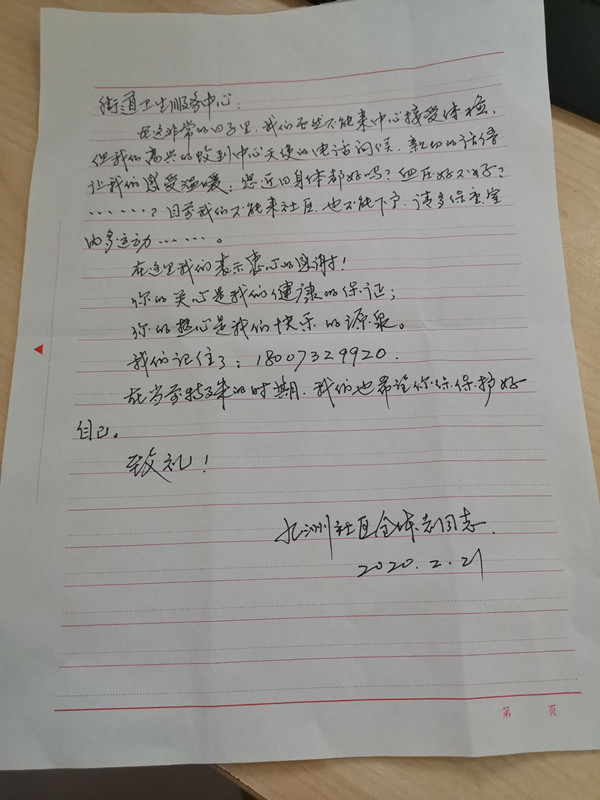 街道卫生服务中心:
在这非常的日子里,我们虽然不能来中心接受体检,
但我们高兴的收到中心天使的电话问候,亲切的话语
让我们感受温暖:您近日身体都好吗?血压好不好?
……?目前我们不能来社区,也不能下户,请多保重,室
内多运动……。
在这里我们表示衷心的感谢!
你的关心是我们健康的保证;
你的热心是我们快乐的源泉。
我们记住了:18007329920.
在当前特殊的时期,我们也希望你们保护好
自己。
致礼!
九洲社区全体老同志
2020.2.21
第 页